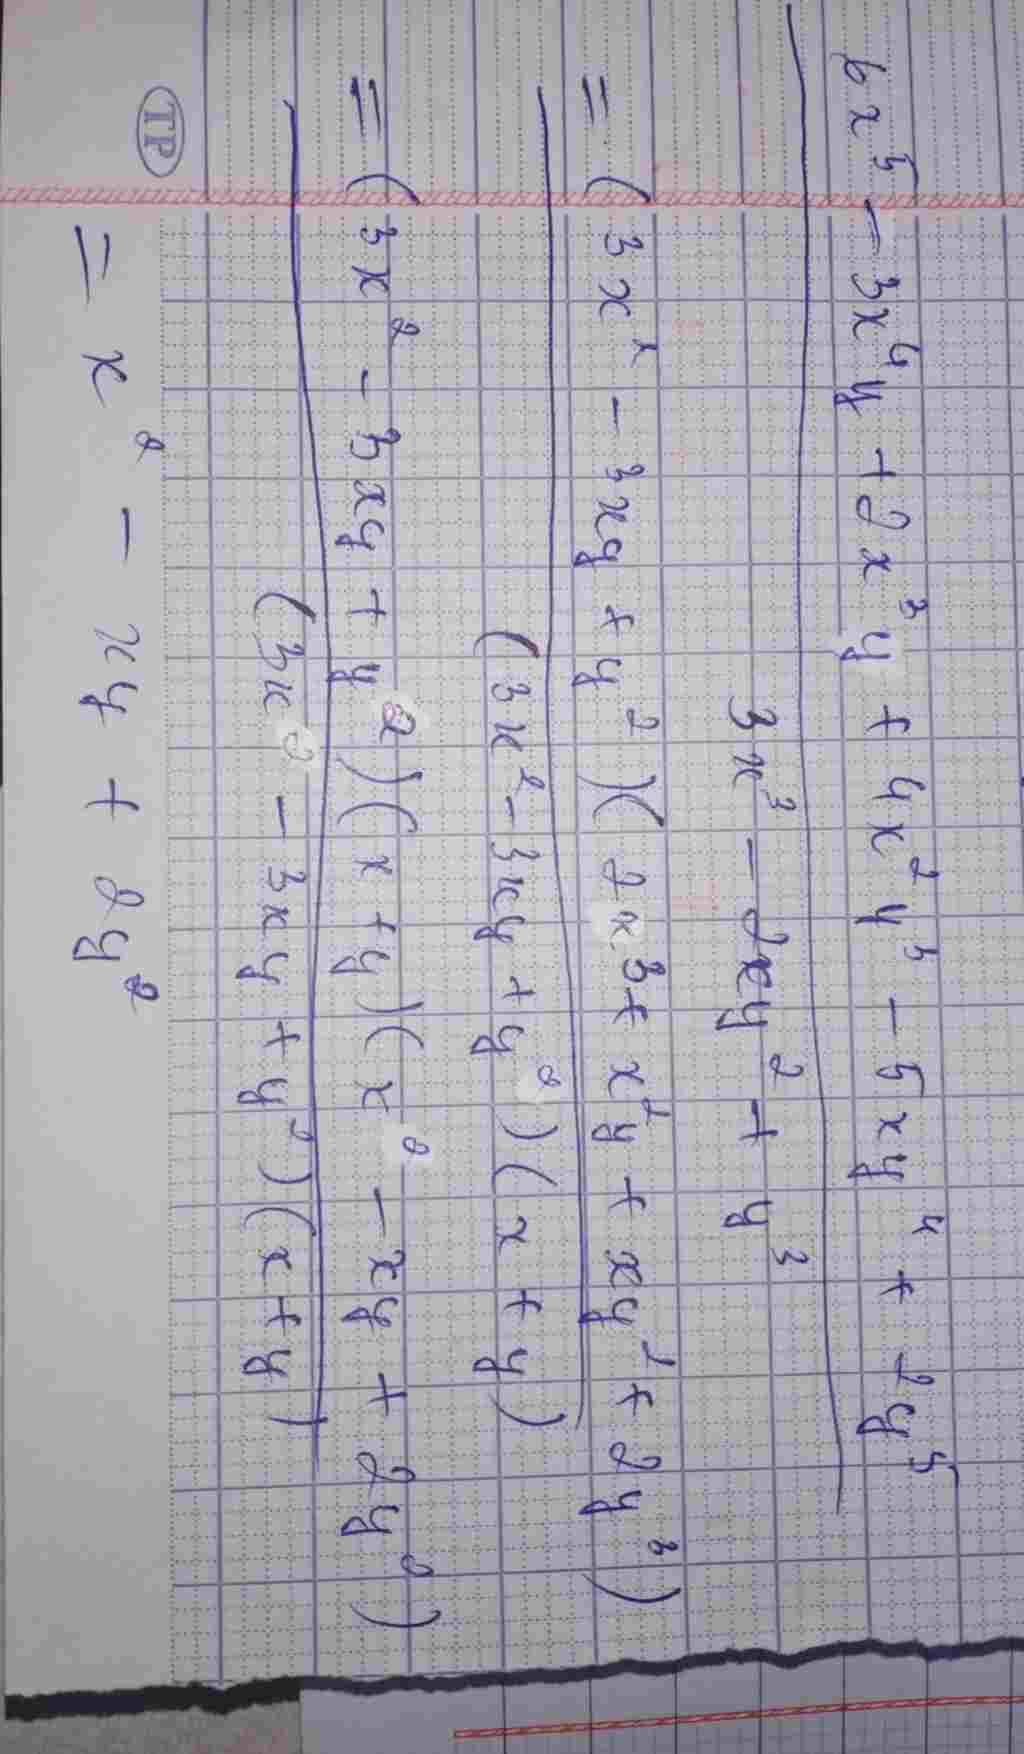 6x⁵ - 3x⁴y + 2x³y + 4x²y³ - 5xy⁴ + 2y⁵
3x³ - 2xy² + y³
= (3x² - 3xy + y²)(2x³ + x²y + xy² + 2y³)
(3x² - 3xy + y²)(x + y)
= (3x² - 3xy + y²)(x + y)(x² - xy + 2y²)
(3x² - 3xy + y²)(x + y)
= x² - xy + 2y²
TP